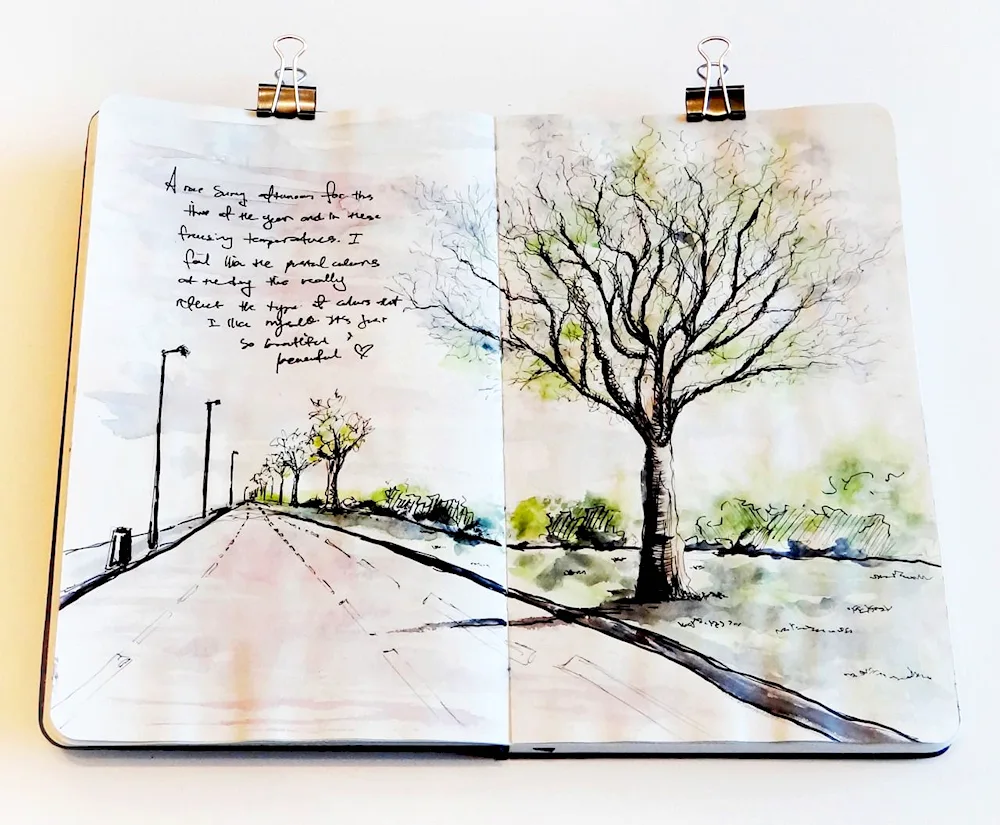 A rare sunny afternoon for this
time of the year and in these
freezing temperatures. I
feel like the pastel colours
at the day this really
reflect the type of colours that
I like myself. It's just
so beautiful,
peaceful ♡